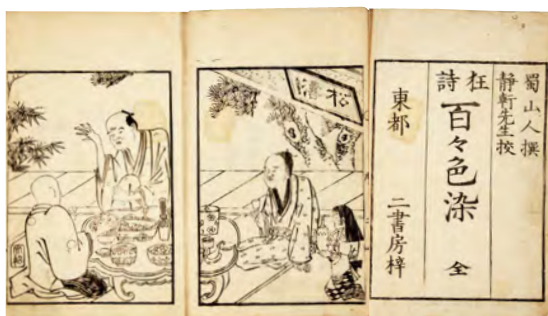 蜀山人撰
静軒先生挍
狂詩
百々色染 全
東都 二書房梓
松